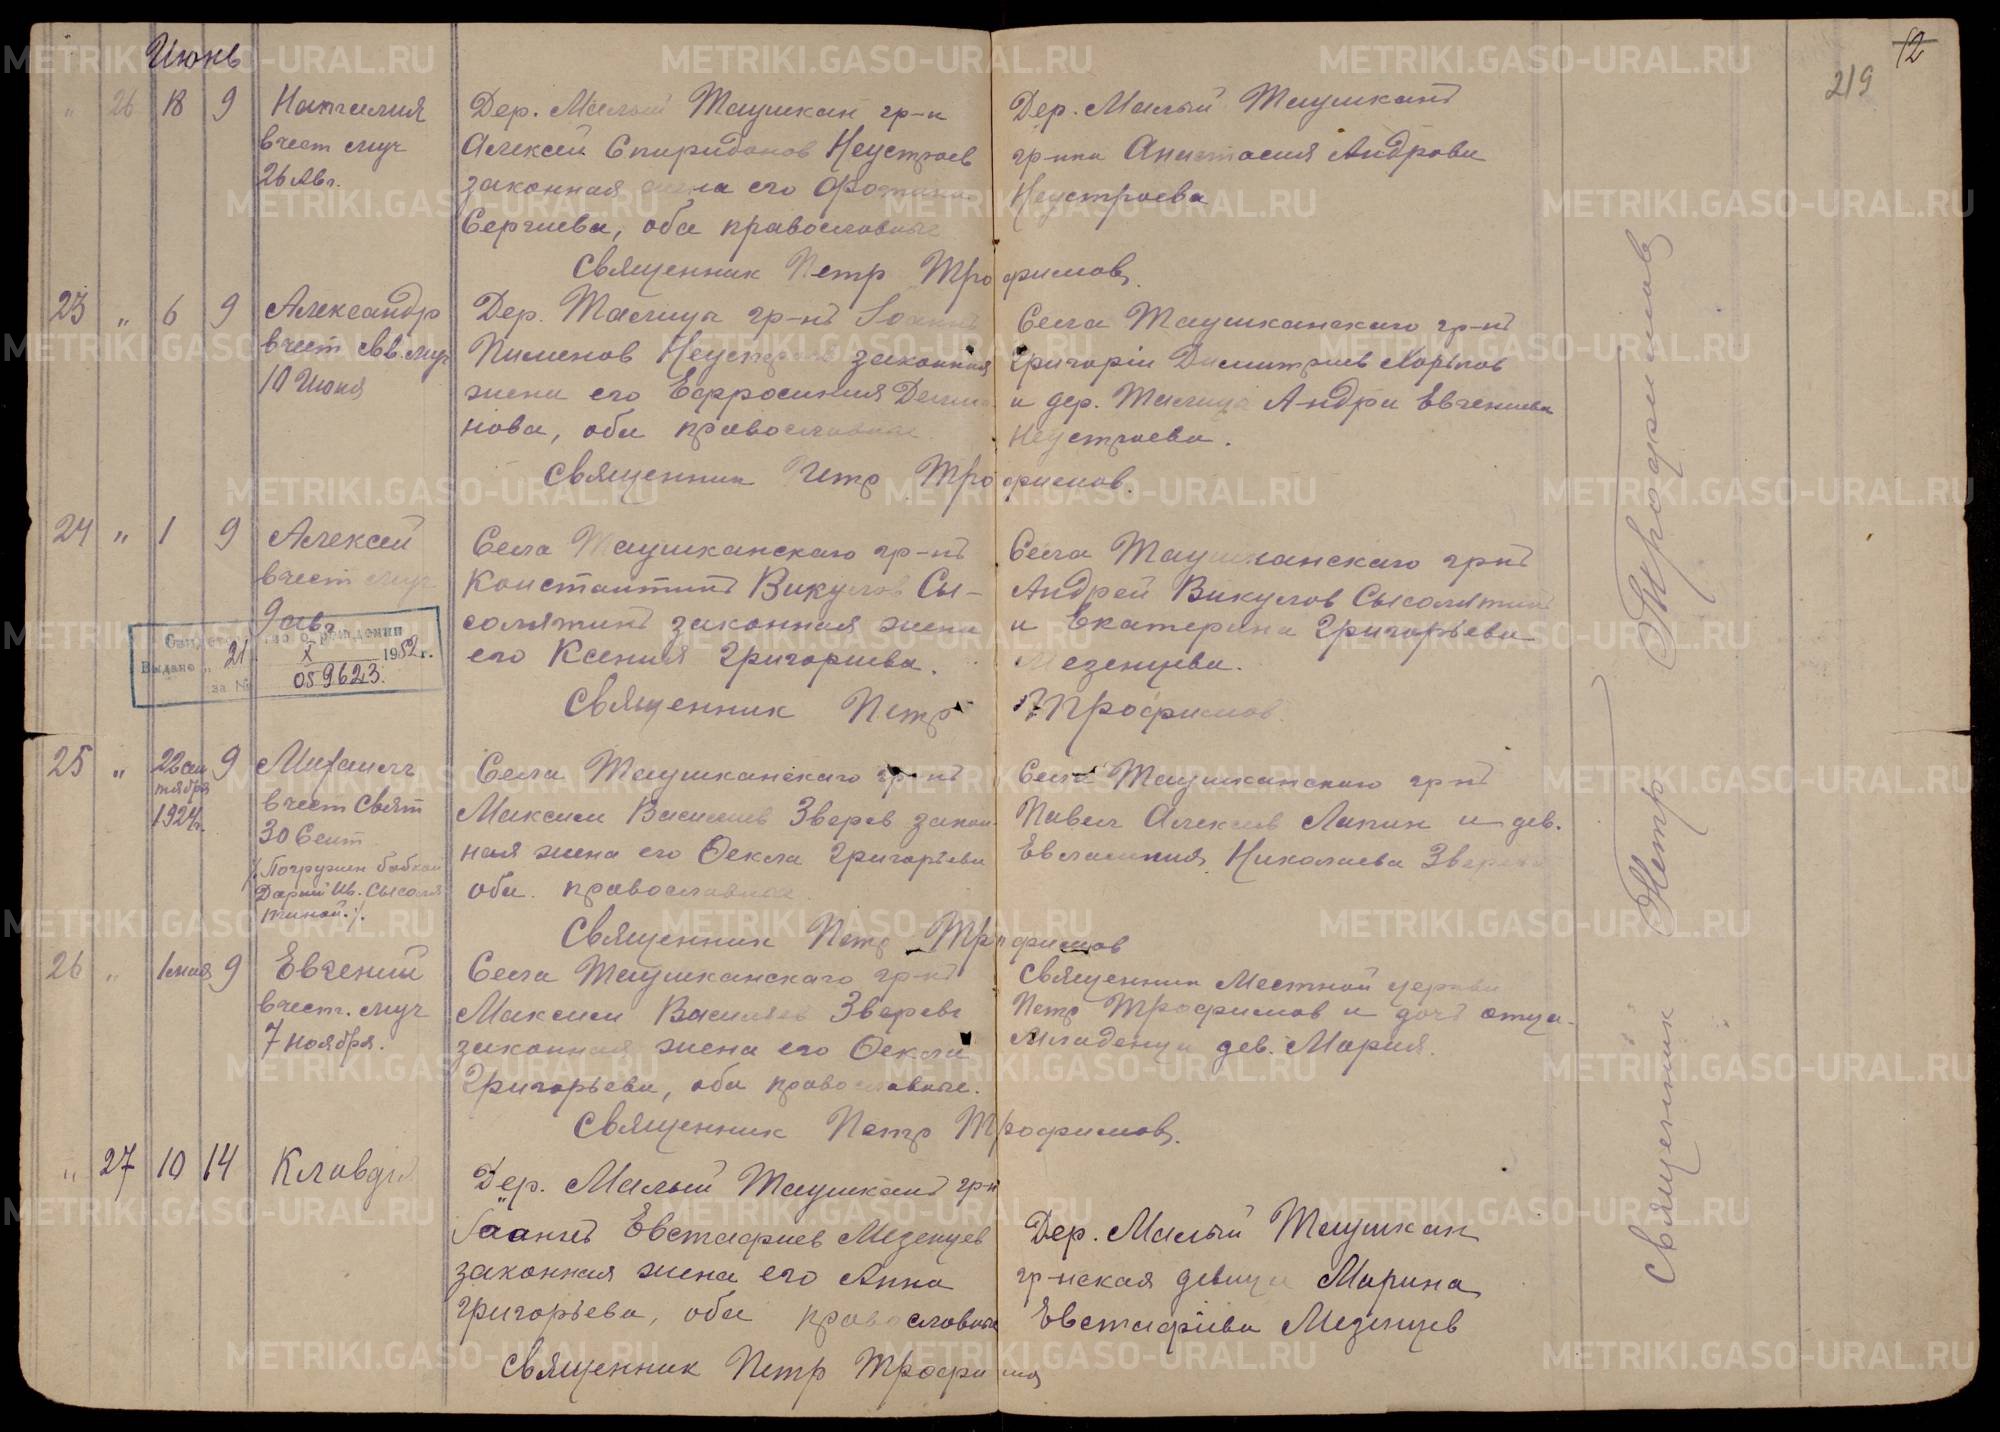 Июнь
12
219
" 26 18 9 Наталия
в чест муч
26 Авг.
Дер. Малый Таушкан гр-н
Алексей Спиридонов Неустроев
законная жена его Фотина
Сергиева, оба православные
Дер. Малый Таушканъ
гр-нка Анастасия Андрова
Неустроева
Священник Петр Трофимов.
23 " 6 9 Александр
в чест свв. муч
10 Июня
Дер. Талица гр-нъ Іоаннъ
Пименов Неустроев законная
жена его Евфросиния Деми
нова, оба православные
Села Таушканскаго гр-нъ
Григорій Димитриев Хорьков
и дер. Талица А-ндра Евгениева
Неустроева.
Священник Петр Трофимов.
24 " 1 9 Алексей
в чест муч
9 авг.
Свидетельство о рождении
Выдано " 21 X 1952 г.
за № 059623.
Села Таушканскаго гр-нъ
Константинъ Викулов Сы-
солятинъ законная жена
его Ксения Григориева.
Села Таушканскаго грнъ
Андрей Викулов Сысолятин
и Екатерина Григорьева
Мезенцева.
Священник Петр Трофимов.
25 " 22 сен 9 Михаилъ
тября
1924г.
в чест Свят
30 Сент
/. Погружен бабкой
Дарий Ив. Сысоля
тиной. /.
Села Таушканскаго гр-нъ
Максим Васильев Зверев закон
ная жена его Фекла Григорьева
оба православные
Села Таушканскаго гр-нъ
Павел Алексиев Лапин и дев.
Евлампия Николаева Зверева
Священник Петр Трофимов
26 " 1 мая 9 Евгений
в чест. муч
7 ноября.
Села Таушканскаго гр-нъ
Максим Васильев Зверевъ
законная жена его Фекла
Григорьева, оба православные.
Священник Местной церкви
Петр Трофимов и дочь отца
младенца дев. Мария.
Священник Петр Трофимов.
" 27 10 14 Клавдия
Дер. Малый Таушканъ гр-н
Іоаннъ Евстафиев Мезенцев
законная жена его Анна
Григорьева, оба православные
Дер. Малый Таушкан
гр-нская девица Марина
Евстафиева Мезенцев
Священник Петр Трофимов
Священник Петр Трофимов